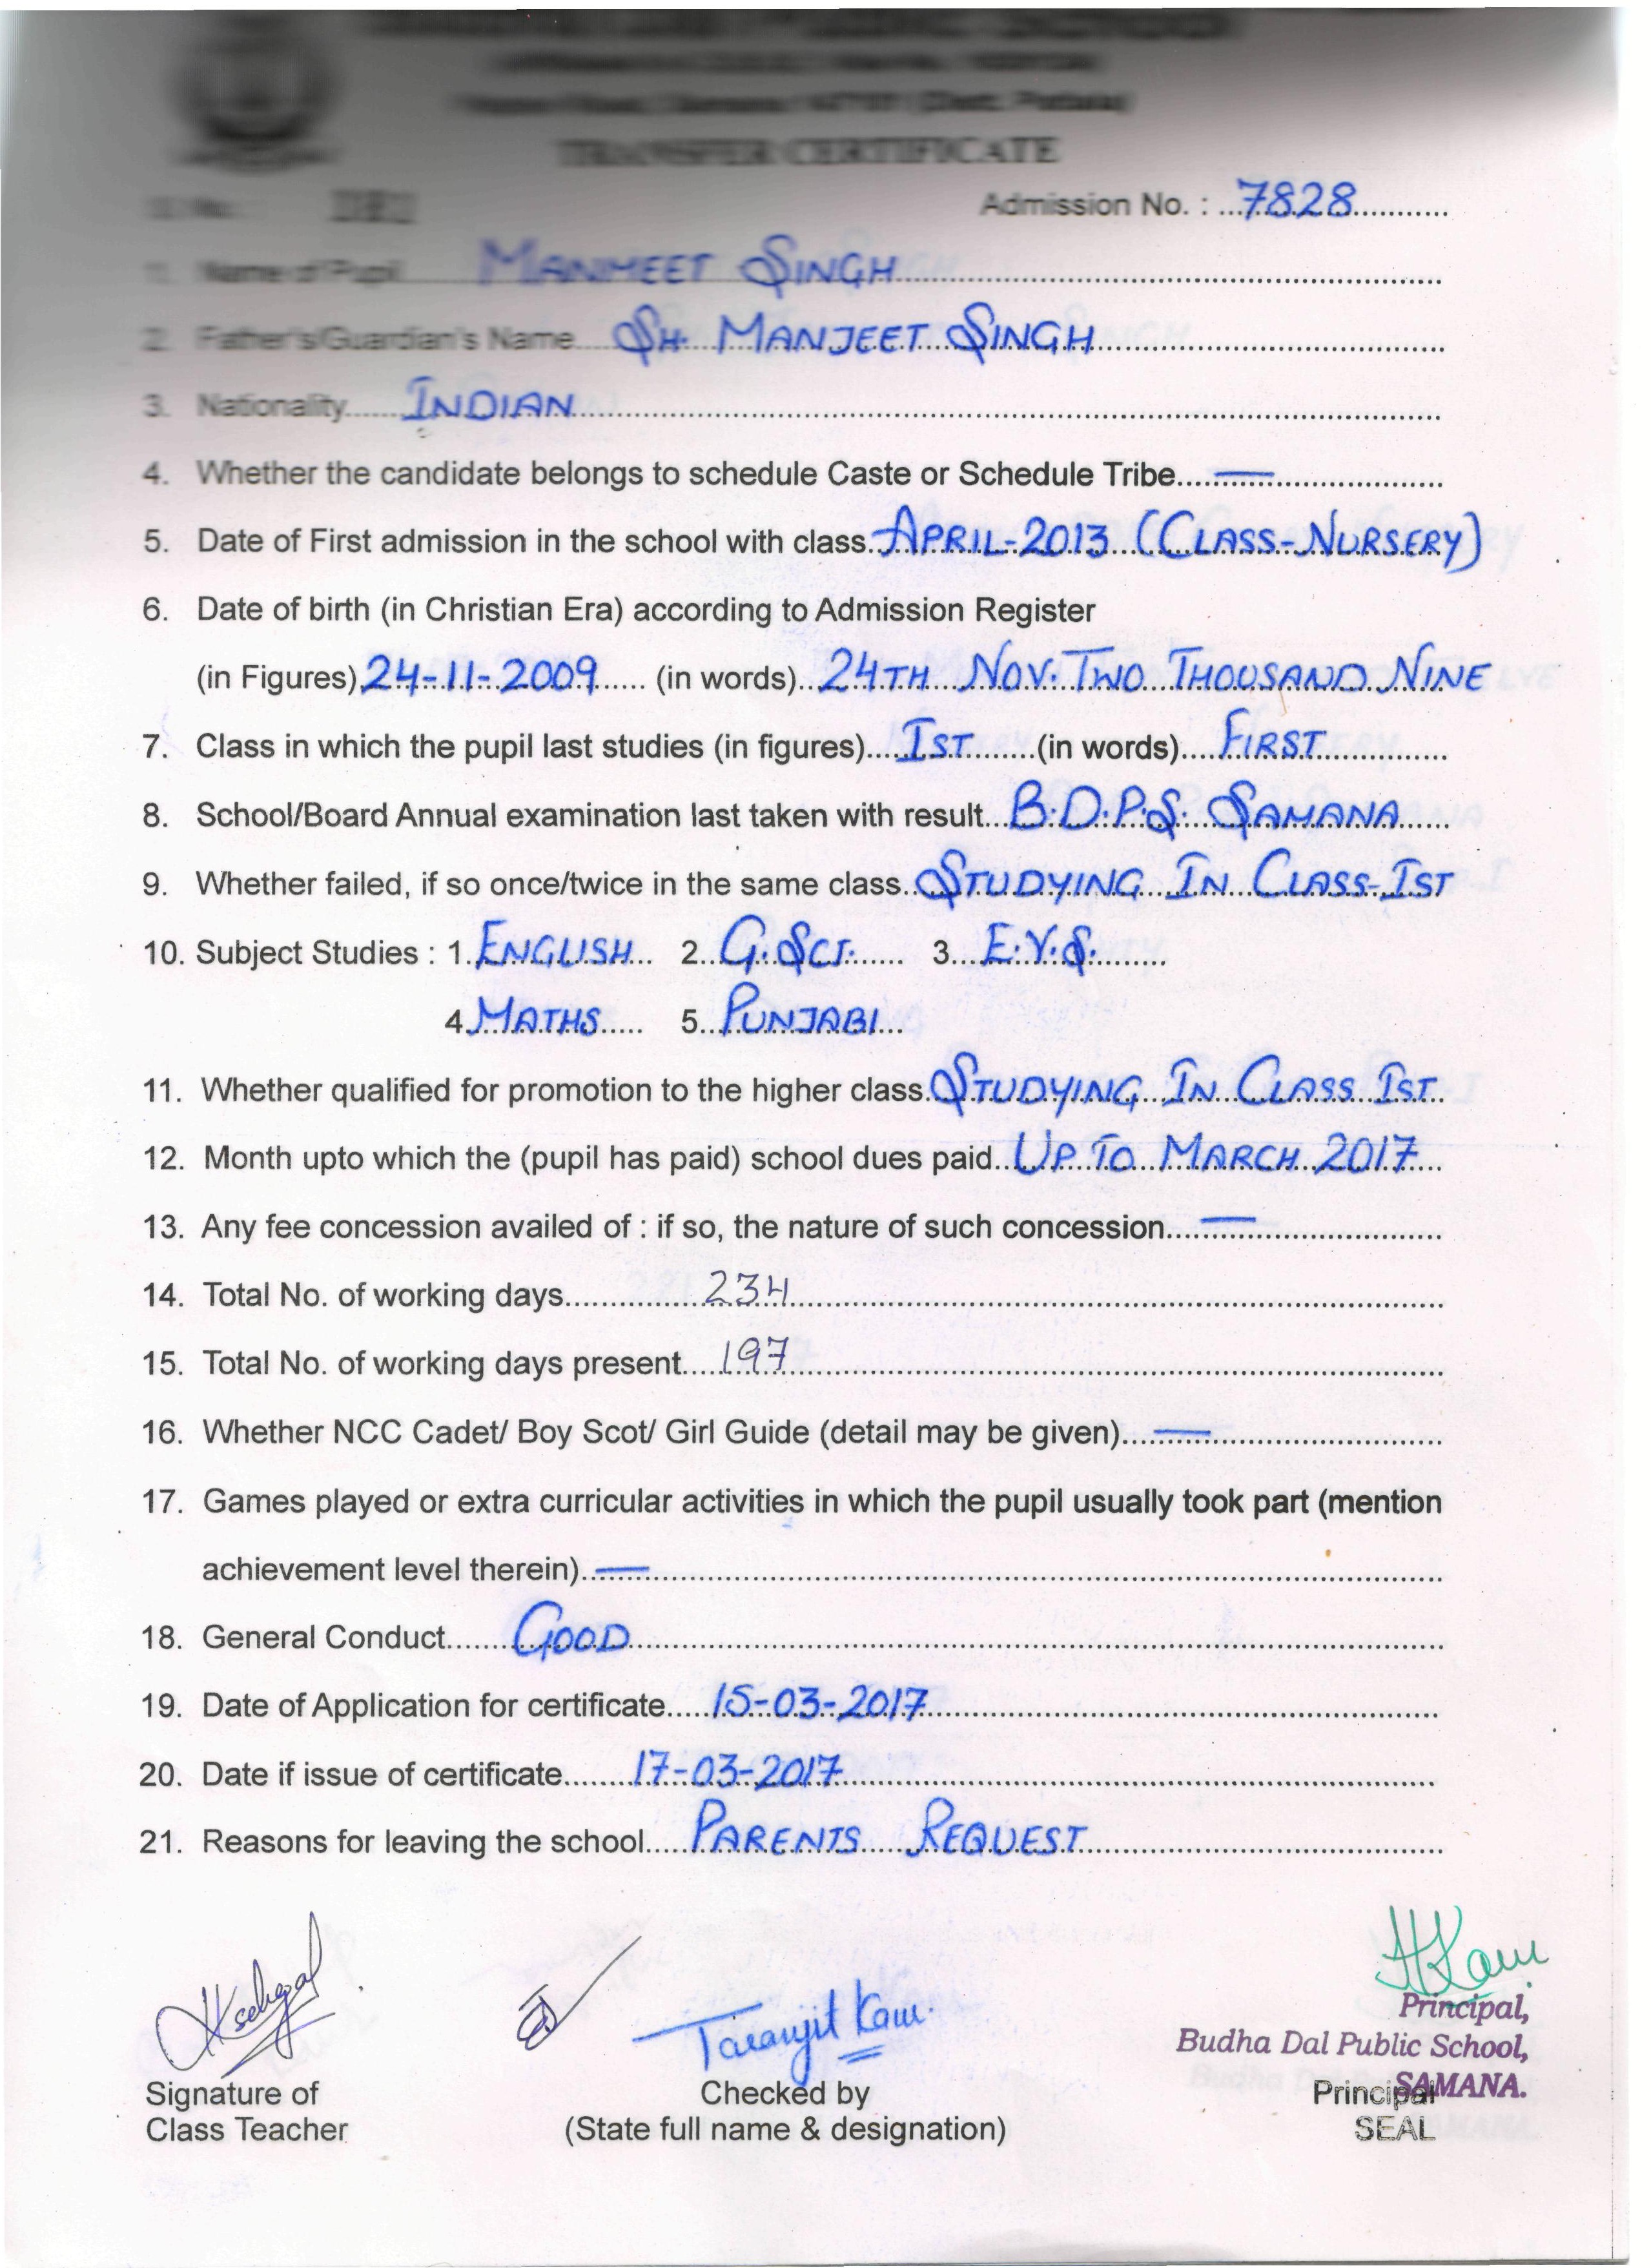 TRANSFER CERTIFICATE
Admission No. : 7828
1. Name of Pupil MANMEET SINGH
2. Father's/Guardian's Name SH. MANJEET SINGH
3. Nationality INDIAN
4. Whether the candidate belongs to schedule Caste or Schedule Tribe —
5. Date of First admission in the school with class APRIL-2013 (CLASS-NURSERY)
6. Date of birth (in Christian Era) according to Admission Register
(in Figures) 24-11-2009 (in words) 24TH NOV. TWO THOUSAND NINE
7. Class in which the pupil last studies (in figures) IST (in words) FIRST
8. School/Board Annual examination last taken with result B.D.P.S. SAMANA
9. Whether failed, if so once/twice in the same class STUDYING IN CLASS-IST
10. Subject Studies : 1. ENGLISH 2. G.SCI. 3. E.V.S.
4. MATHS 5. PUNJABI
11. Whether qualified for promotion to the higher class STUDYING IN CLASS IST
12. Month upto which the (pupil has paid) school dues paid UP TO MARCH 2017
13. Any fee concession availed of : if so, the nature of such concession —
14. Total No. of working days 234
15. Total No. of working days present 197
16. Whether NCC Cadet/ Boy Scot/ Girl Guide (detail may be given) —
17. Games played or extra curricular activities in which the pupil usually took part (mention
achievement level therein) —
18. General Conduct GOOD
19. Date of Application for certificate 15-03-2017
20. Date if issue of certificate 17-03-2017
21. Reasons for leaving the school PARENTS REQUEST
Taranjit Kaur
Principal,
Budha Dal Public School,
SAMANA.
Signature of
Class Teacher
Checked by
(State full name & designation)
Principal
SEAL